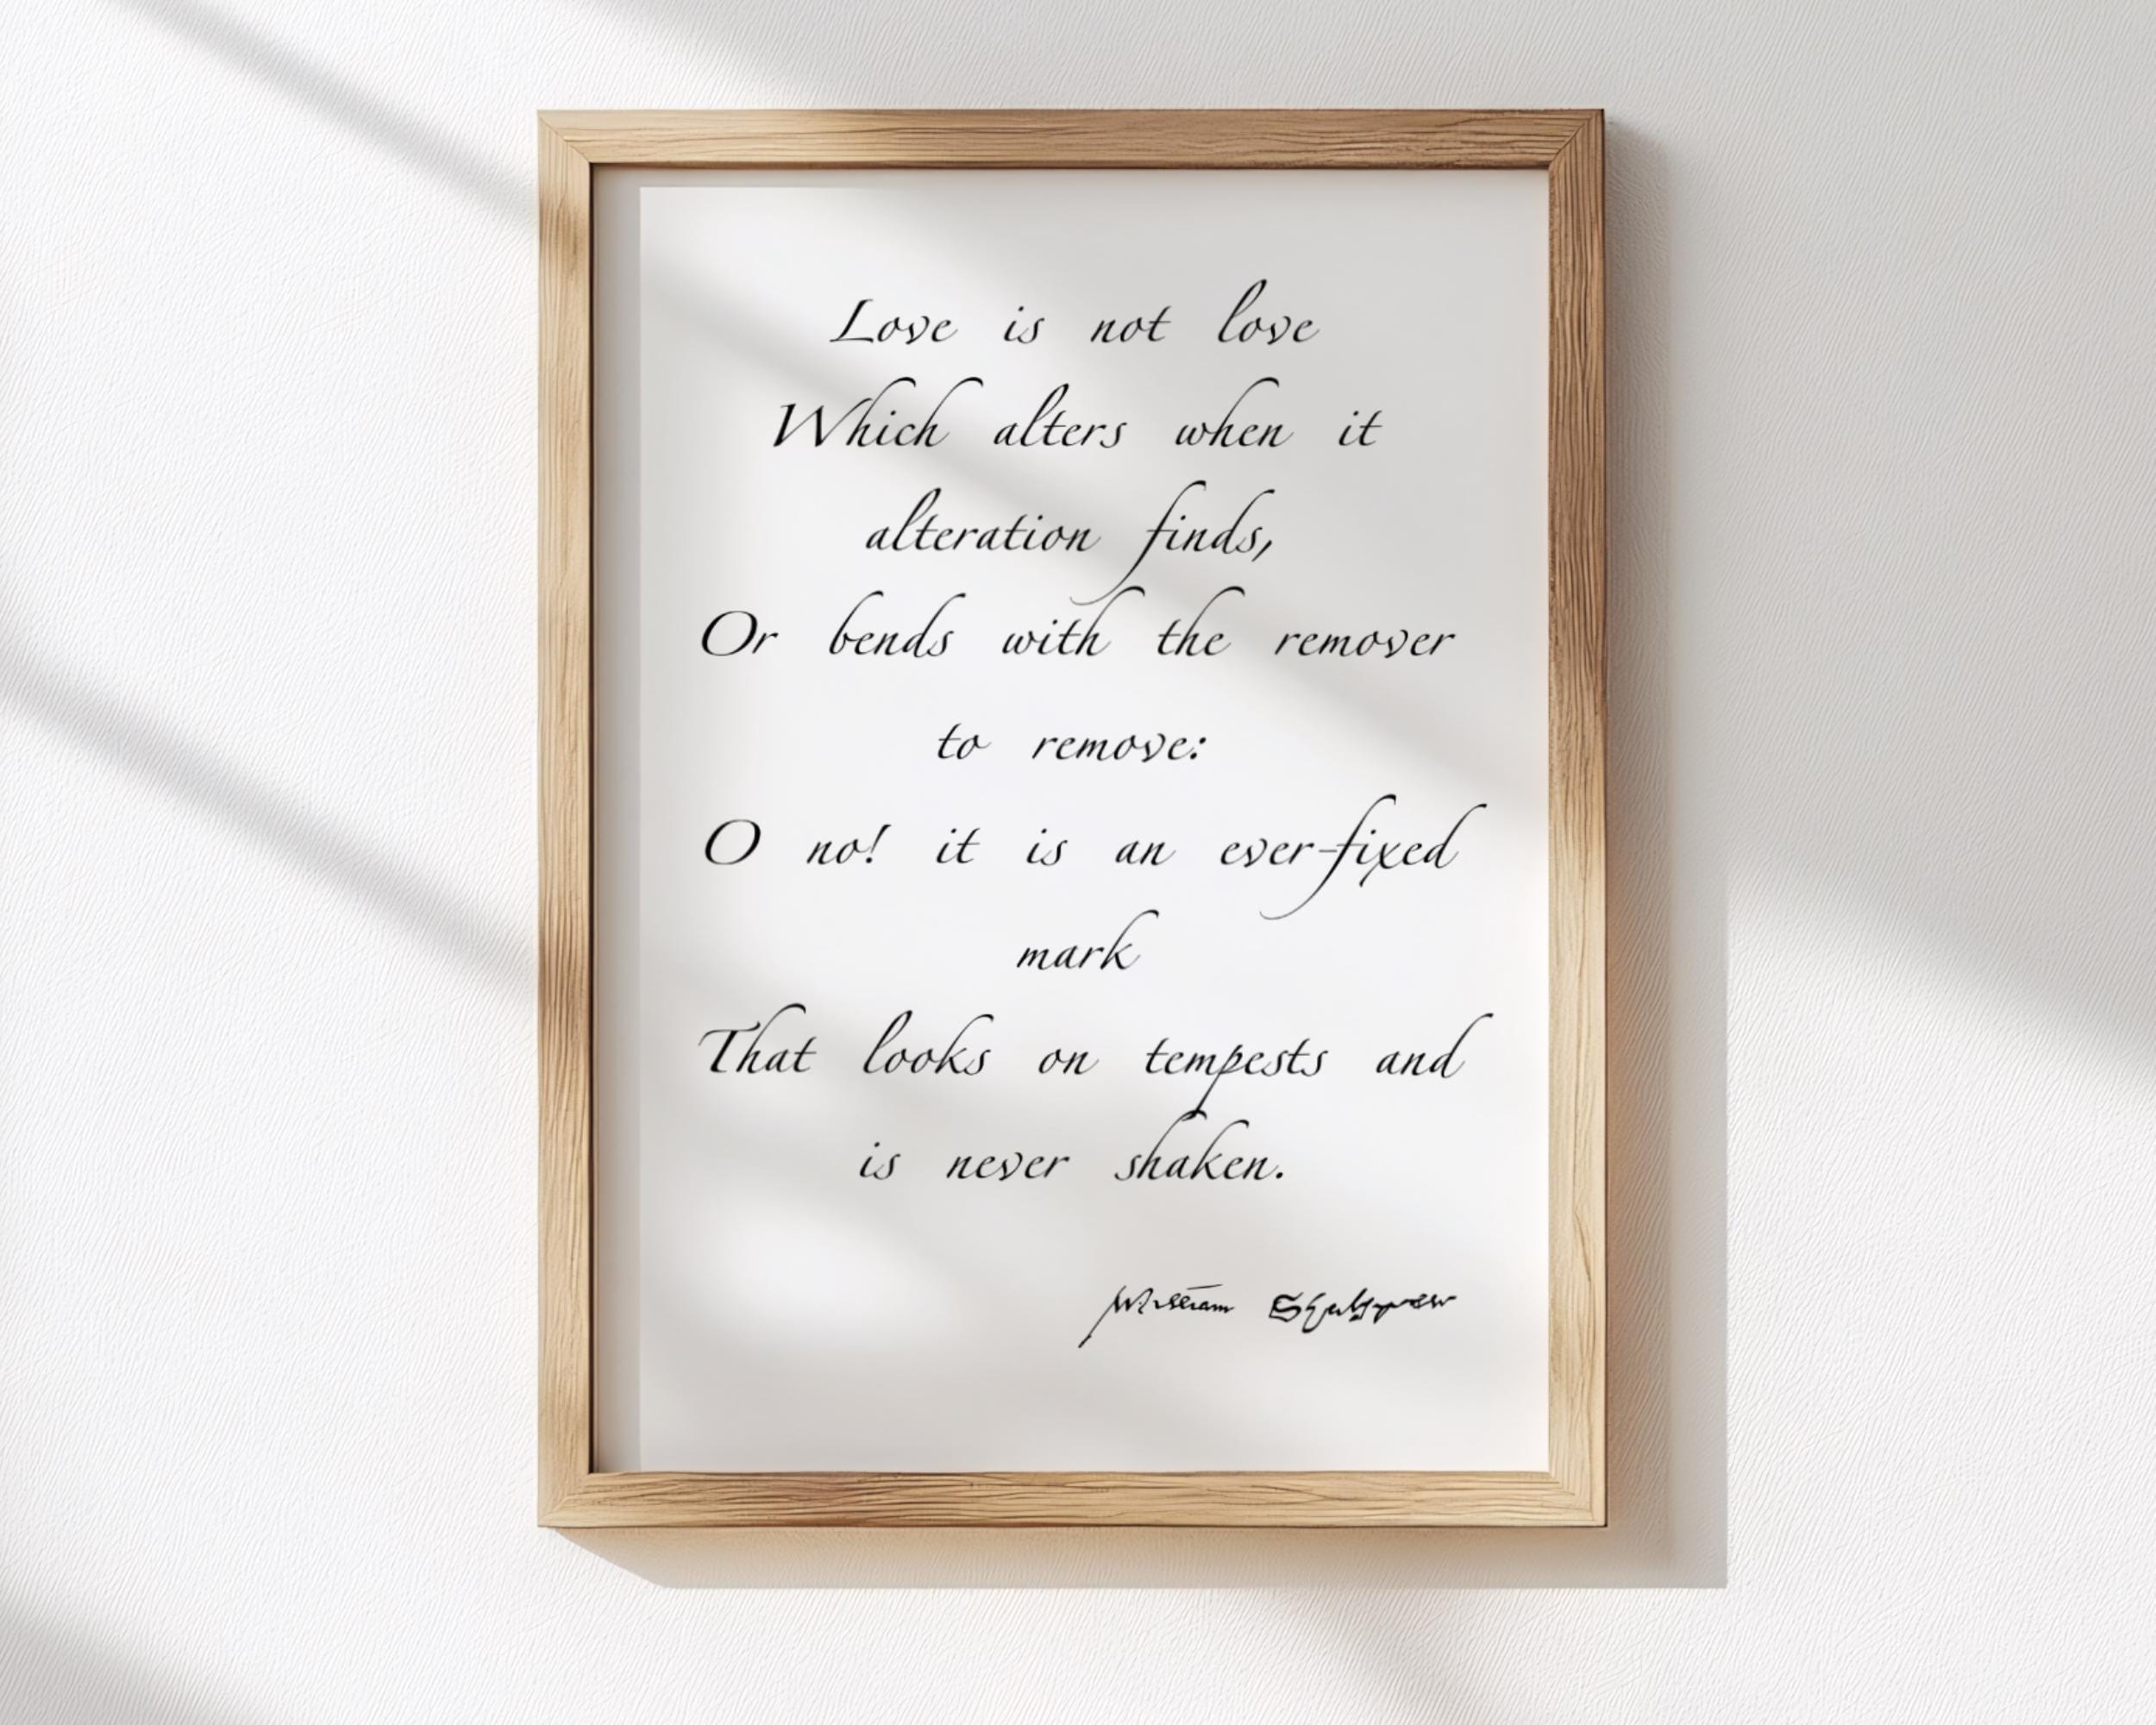 Love is not love
Which alters when it
alteration finds,
Or bends with the remover
to remove:
O no! it is an ever-fixed
mark
That looks on tempests and
is never shaken.
William Shakspeare